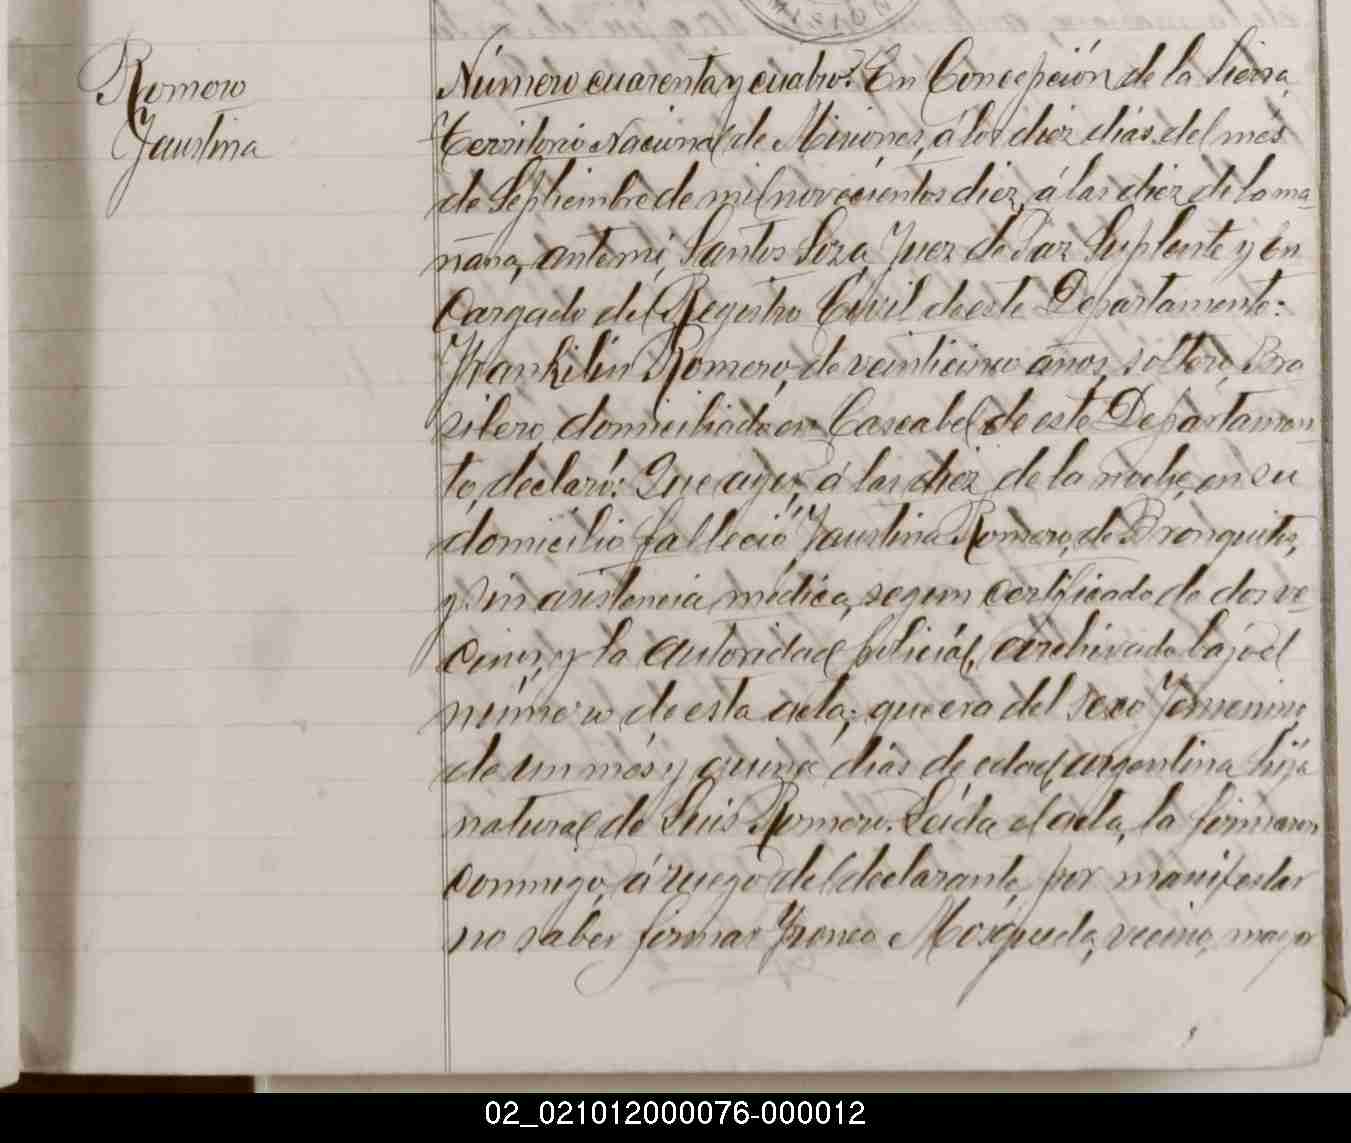 Romero
Faustina
Número cuarenta y cuatro: En Concepción de la Sierra,
Territorio Nacional de Misiones, á los diez dias del més
de Septiembre de mil novecientos diez, á las diez de la ma-
ñana, ante mi, Santos Loza, Juez de Paz Suplente y En
cargado del Registro Civil de este Departamento:
Frankilin Romero, de veinticinco años, soltero, Bra
silero domiciliado en Cascabel de este Departamen-
to, declaró: Que ayer, á las diez de la noche, en su
domicilio falleció Faustina Romero, de Bronquitis,
y sin asistencia médica, segun certificado de dos ve-
cinos, y la autoridad policial, archivado bajo el
número de esta acta; que era del sexo femenino,
de un més y quince dias de edad, argentina hija
natural de Luis Romero. Leida el acta, la firmaron
conmigo, á ruego del declarante, por manifestar
no saber firmar Franco Mosqueda, vecino, mayor
02_021012000076-000012